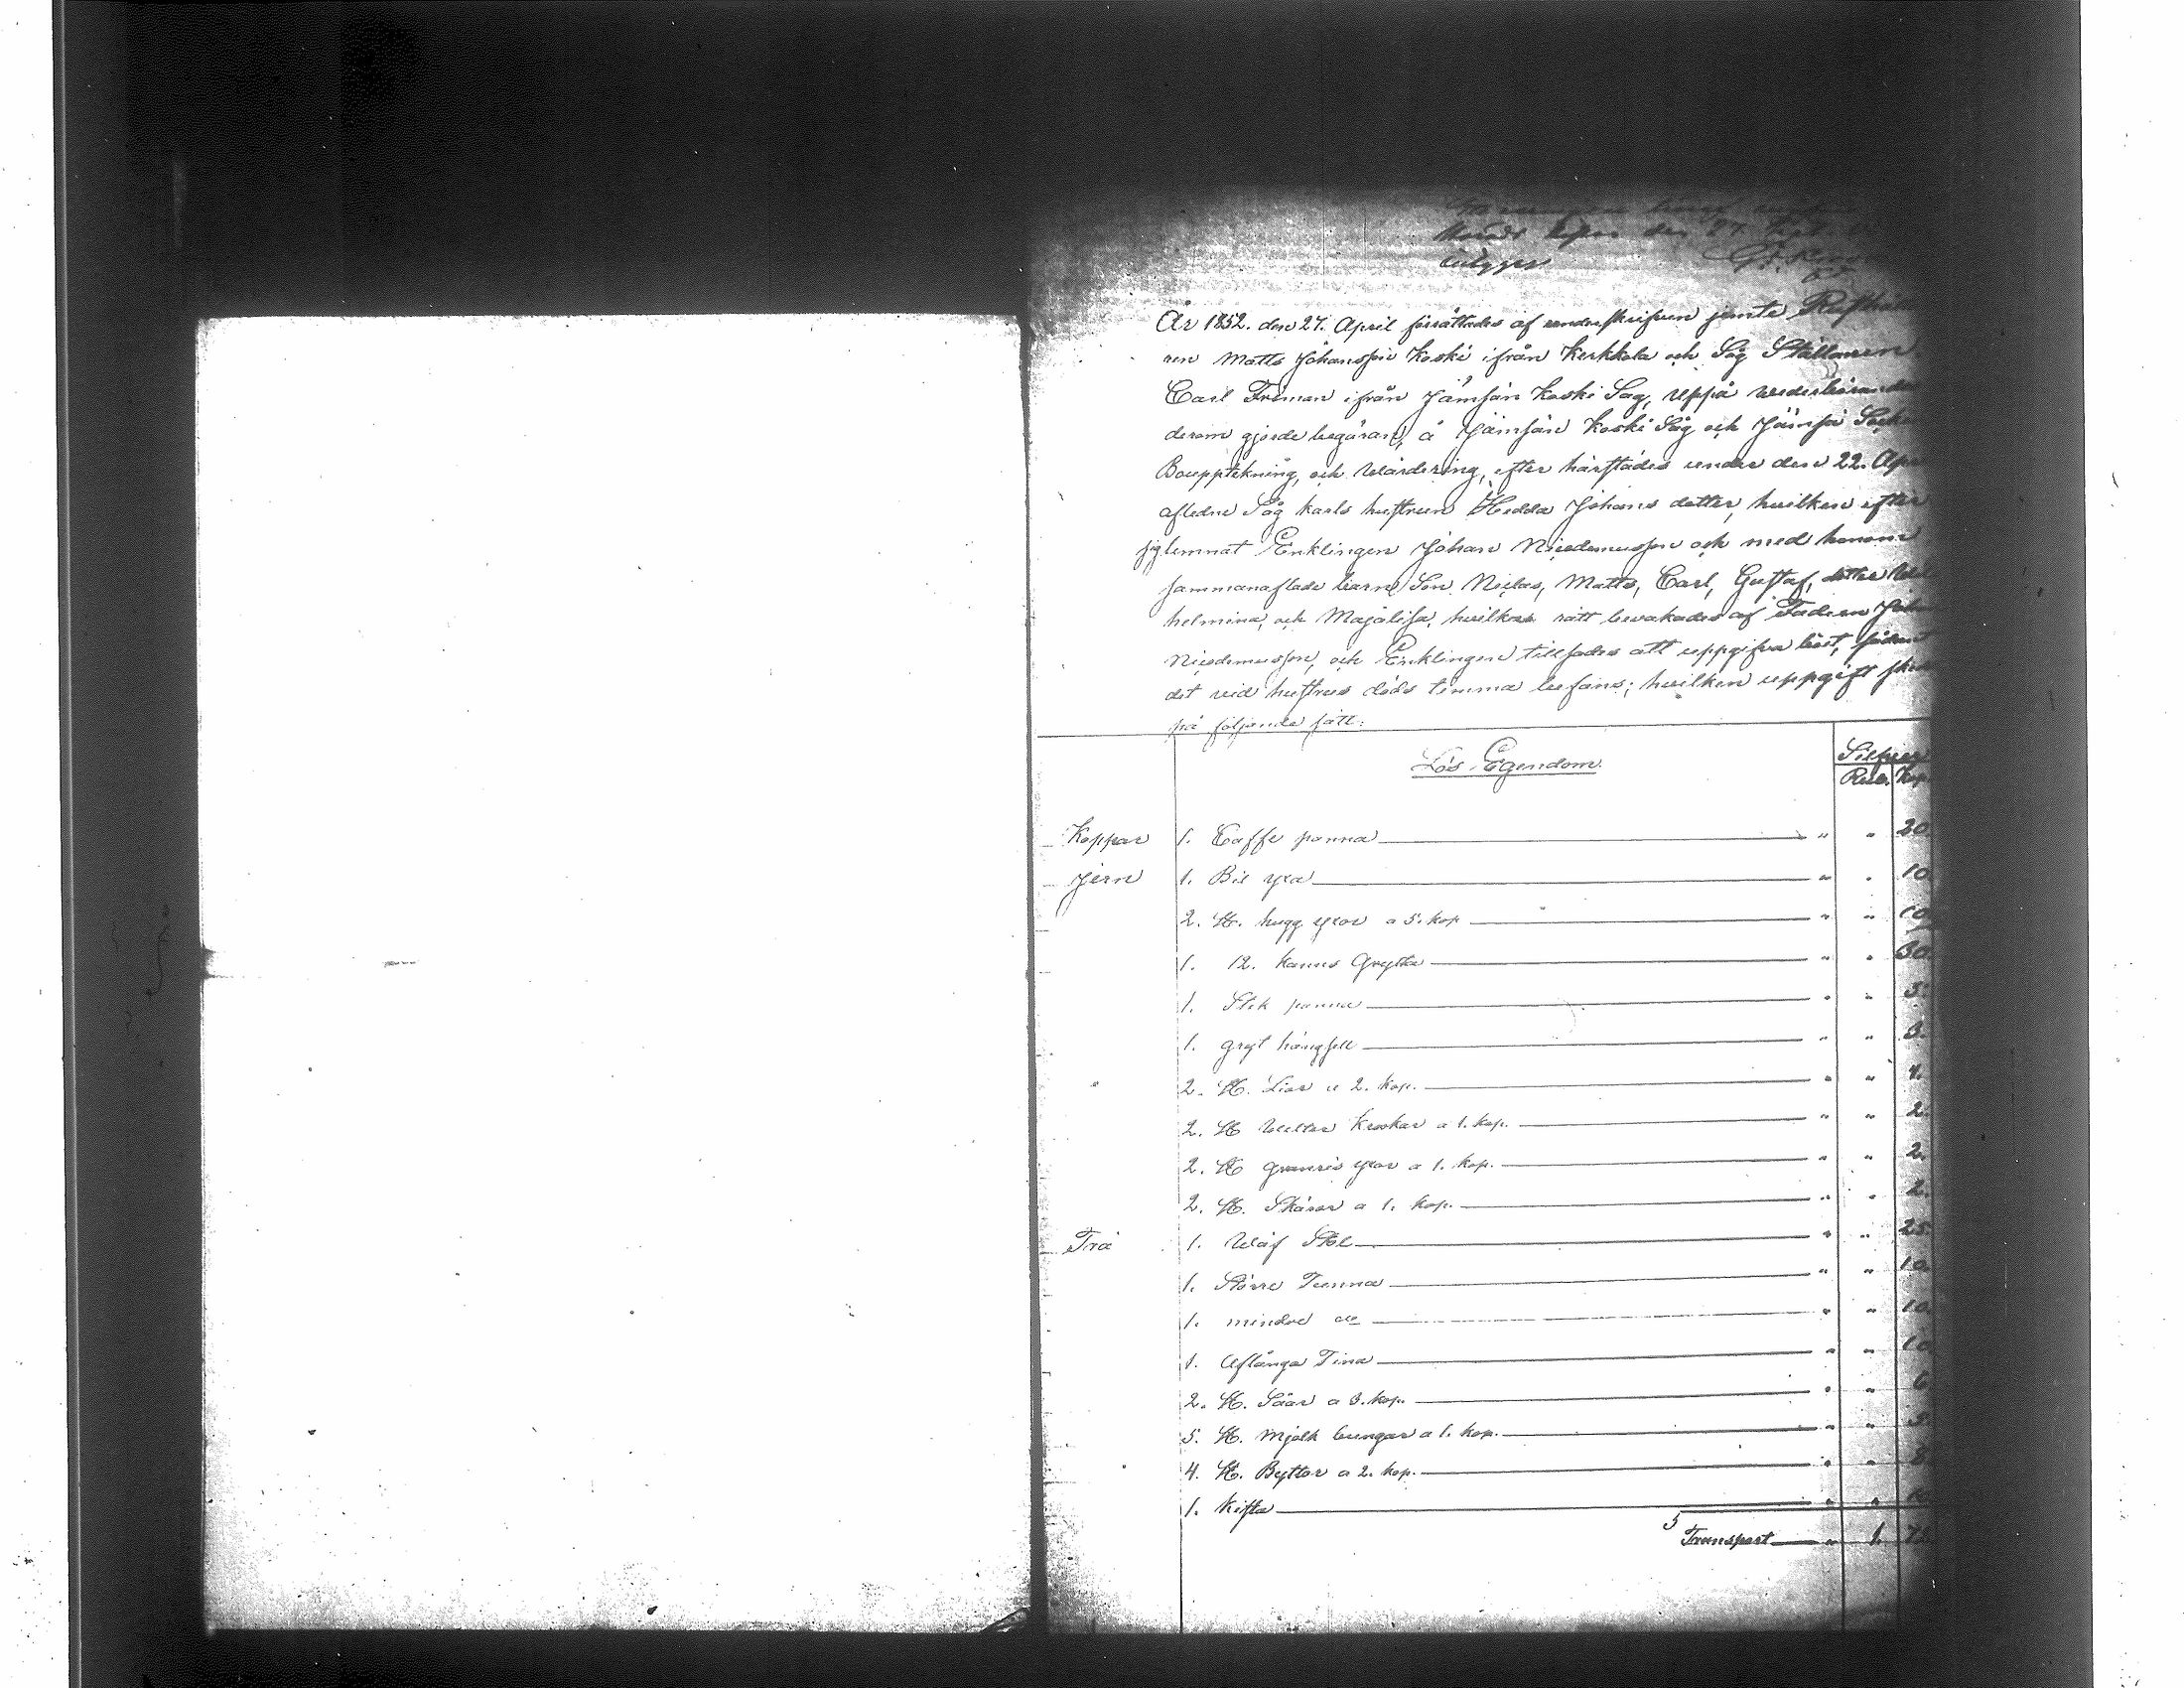 den 27. Sept.
År 1852. den 27. April förrättades af underskrifven jemte
ren Matts Johansson Koski ifrån Kerkkola och Såg Ställaren
Carl Friman ifrån Jämsän Koski Såg, uppå wederbörandes
derom gjorde begäran, å Jämsän Koski Såg och Jämsä
Bouppteknińg, och Wärdering, efter härstädes under den 22. Apr
aflidne Såg karls hustrun Hedda Johans dotter, hvilken efter
sig lemnat Enklingen Johan Nicodemusson och med honom
sammanaflade barn, Son Niclas, Matts, Carl, Gustaf, dotter Wil
helmina, och Majalisa, hvilkas rätt bevakades af Fadren Joh
Nicodemusson, och Enklingen tillsades att uppgifva boet, sådant
det vid hustrus döds timma befans; hvilken uppgift
på följande sätt.
Lös Egendom. Silfver
Rub. Kop.
Koppar 1. Caffe panna " " 20
Jern 1. Bil yxa " " 10
2. St. hugg yxor a 5. kop " " 10
1. 12. kanns Gryta " " 30.
1. Stek panna " " 5.
1. gryt hängsel " " 3.
2. St. Liar a 2. kop. " " 4.
2. St Krokar a 1. kop. " " 2.
2. St granris yxor a 1. kop. " " 2.
2. St. Skäror a 1. kop. " " 2.
Trä 1. Wäf Stol " " 25.
1. Större Tunna " " 10.
1. mindre do " " 10.
1. Aflånga Tina " " 10
2. St. Såar a 3. kop. " " 6
5. St. Mjölk bungar a 1. kop. " " 5
4. St. Byttor a 2. kop. " " 8
1. Kista " "
Transport " 1.